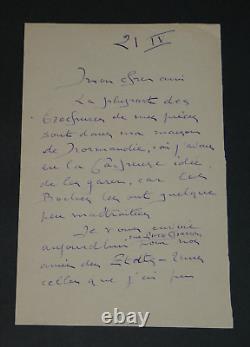 21 IV
mon cher ami
La plupart des
brochures de mes pièces
sont dans ma maison
de Normandie, où j'avais
eu la fâcheuse idée
de les garer, car les
Boches les ont quelque
peu maltraitées
Je vous envoie
aujourd'hui pour nos
amis des Etats-Unis
celles que j'ai pu